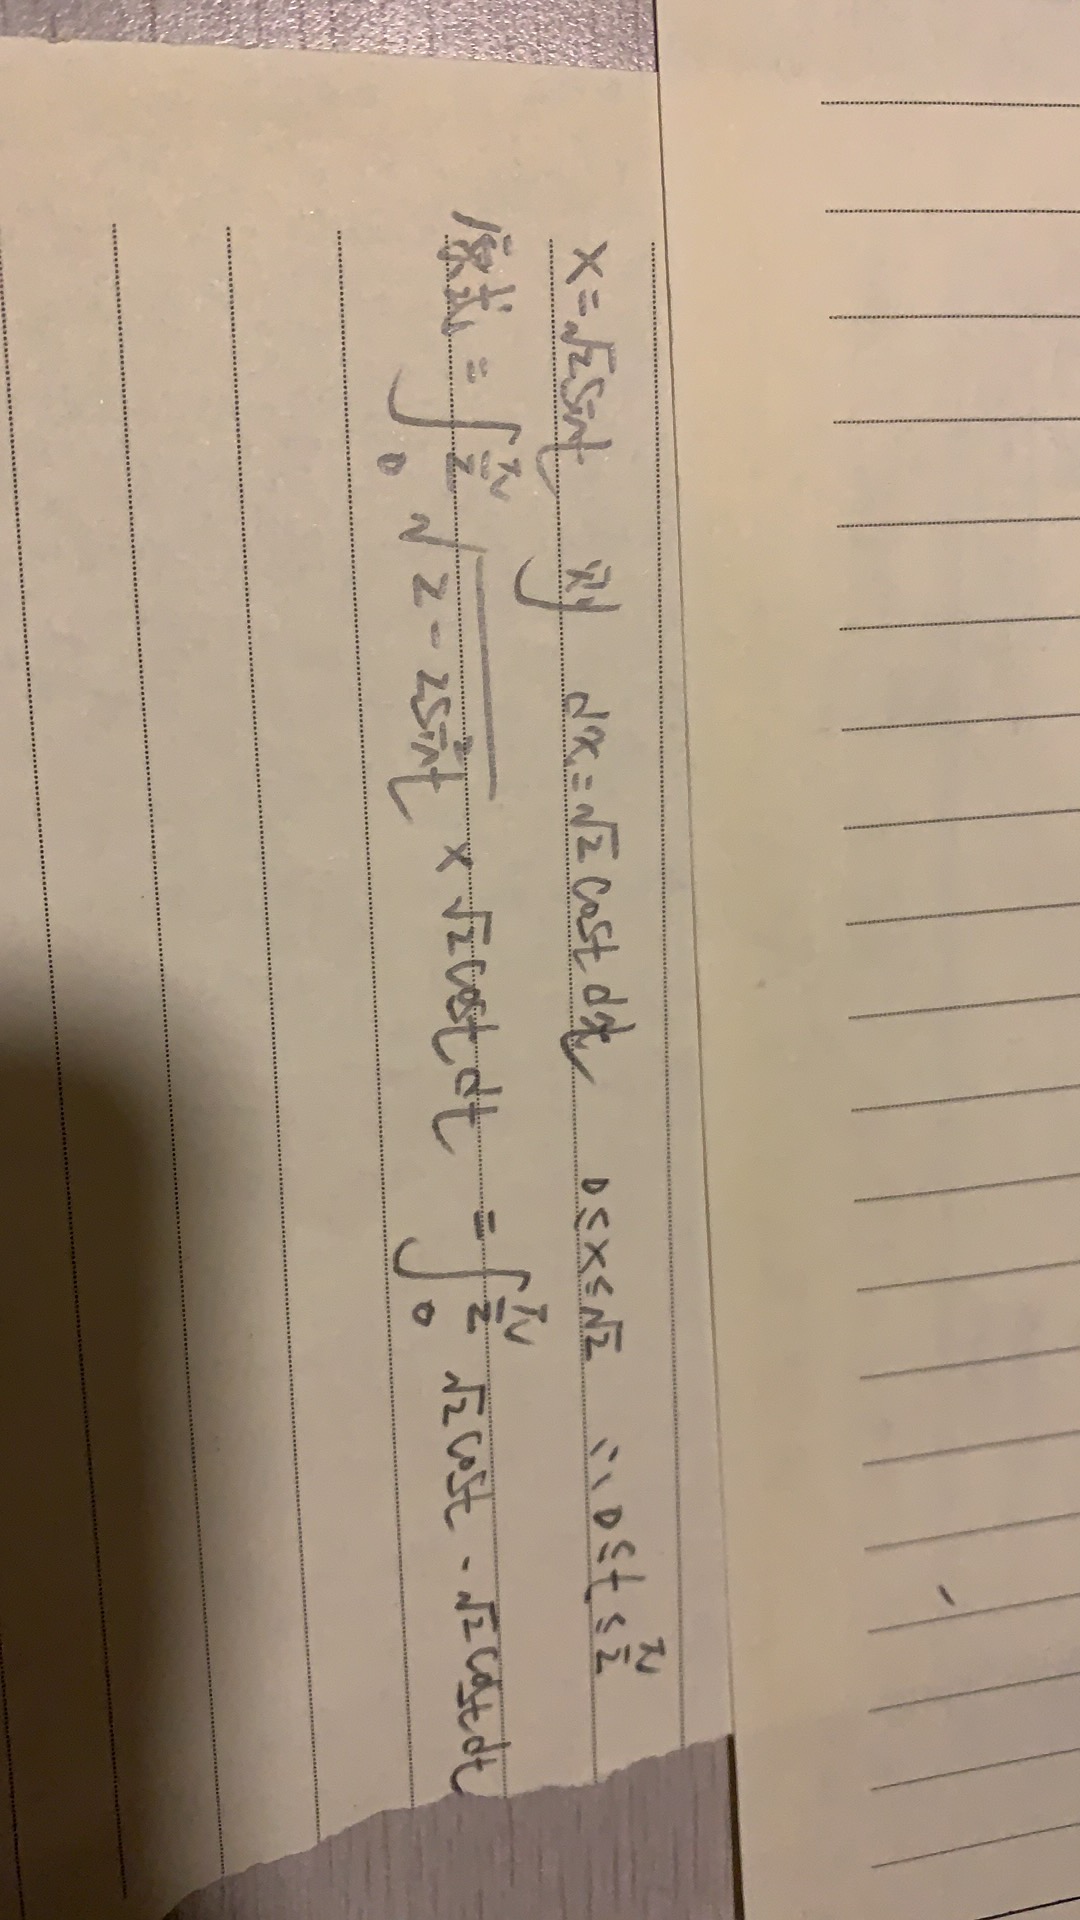 x=√2sint 则 dx=√2costdt 0≤x≤√2 ∴0≤t≤π/2
原式=∫₀^(π/2) √(2-2sin²t) × √2costdt = ∫₀^(π/2) √2cost·√2costdt